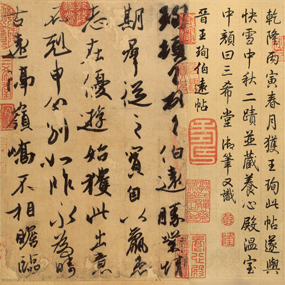 乾隆丙寅春月獲王珣此帖遂與
快雪中秋二蹟並藏養心殿溫室
中顏曰三希堂御筆又識
晉王珣伯遠帖
珣頓首頓首伯遠勝業情
期群從之寶自以羸患
志在優遊始獲此出意
不剋申分別如昨永為疇
古遠隔嶺嶠不相瞻臨